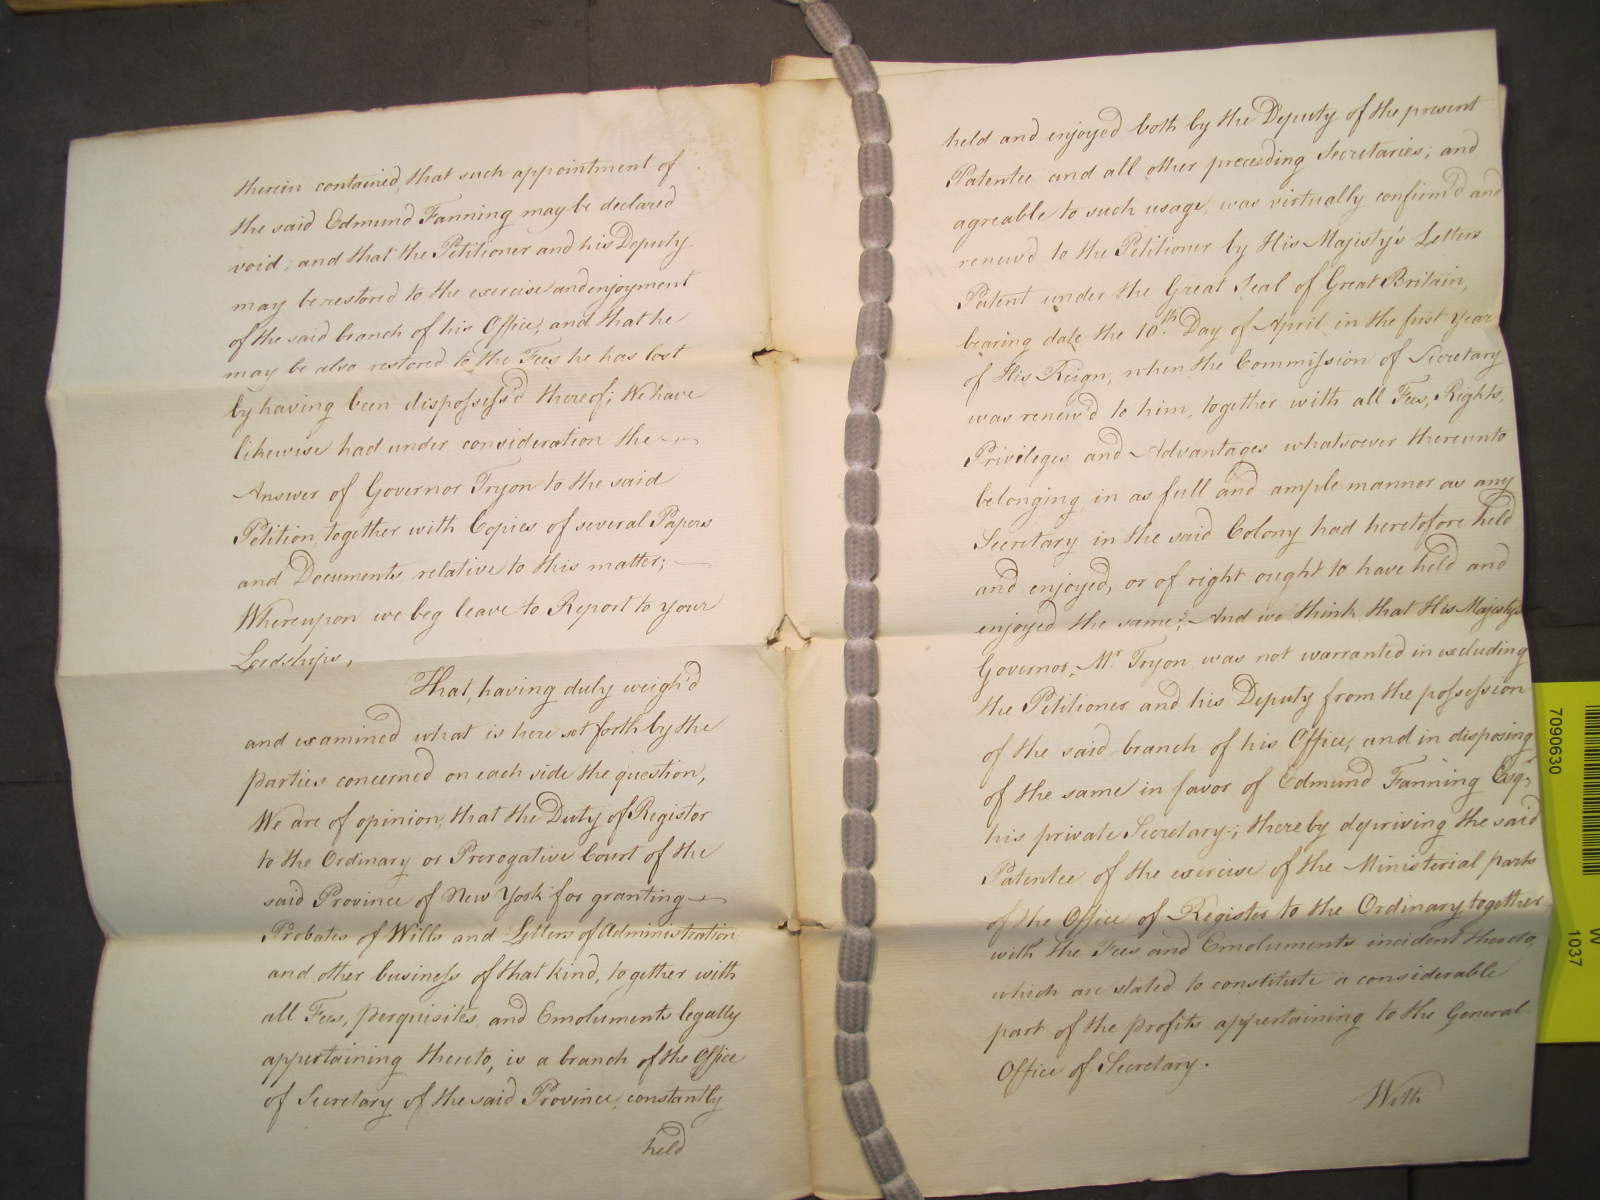 therein contained, that such appointment of
the said Edmund Fanning may be declared
void; and that the Petitioner and his Deputy
may be restored to the exercise and enjoyment
of the said branch of his Office, and that he
may be also restored to the Fees he has lost
by having been dispossess'd thereof; We have
likewise had under consideration the
Answer of Governor Tryon to the said
Petition, together with Copies of several Papers
and Documents relative to this matter;
Whereupon we beg leave to Report to your
Lordships,
That, having duly weigh'd
and examined what is here set forth by the
parties concerned on each side the question,
We are of opinion, that the Duty of Register
to the Ordinary or Prerogative Court of the
said Province of New York for granting
Probates of Wills and Letters of Administration
and other business of that kind, together with
all Fees, perquisites, and Emoluments legally
appertaining thereto, is a branch of the Office
of Secretary of the said Province, constantly
held
held and enjoyed both by the Deputy of the present
Patentee and all other preceeding Secretaries; and
agreable to such usage, was virtually confirm'd and
renew'd to the Petitioner by His Majesty's Letters
Patent under the Great Seal of Great Britain,
bearing date the 10th Day of April in the first year
of His Reign, when the Commission of Secretary
was renew'd to him, together with all Fees, Rights,
Privileges and Advantages whatsoever thereunto
belonging, in as full and ample manner as any
Secretary in the said Colony had heretofore held
and enjoyed, or of right ought to have held and
enjoyed the same; And we think that His Majesty's
Governor, Mr. Tryon was not warranted in excluding
the Petitioner and his Deputy from the possession
of the said branch of his Office, and in disposing
of the same in favor of Edmund Fanning Esqr.,
his private Secretary; thereby depriving the said
Patentee of the exercise of the Ministerial parts
of the Office of Register to the Ordinary, together
with the Fees and Emoluments incident thereto,
which are stated to constitute a considerable
part of the profits appertaining to the General
Office of Secretary.
With
7090630
W
1037